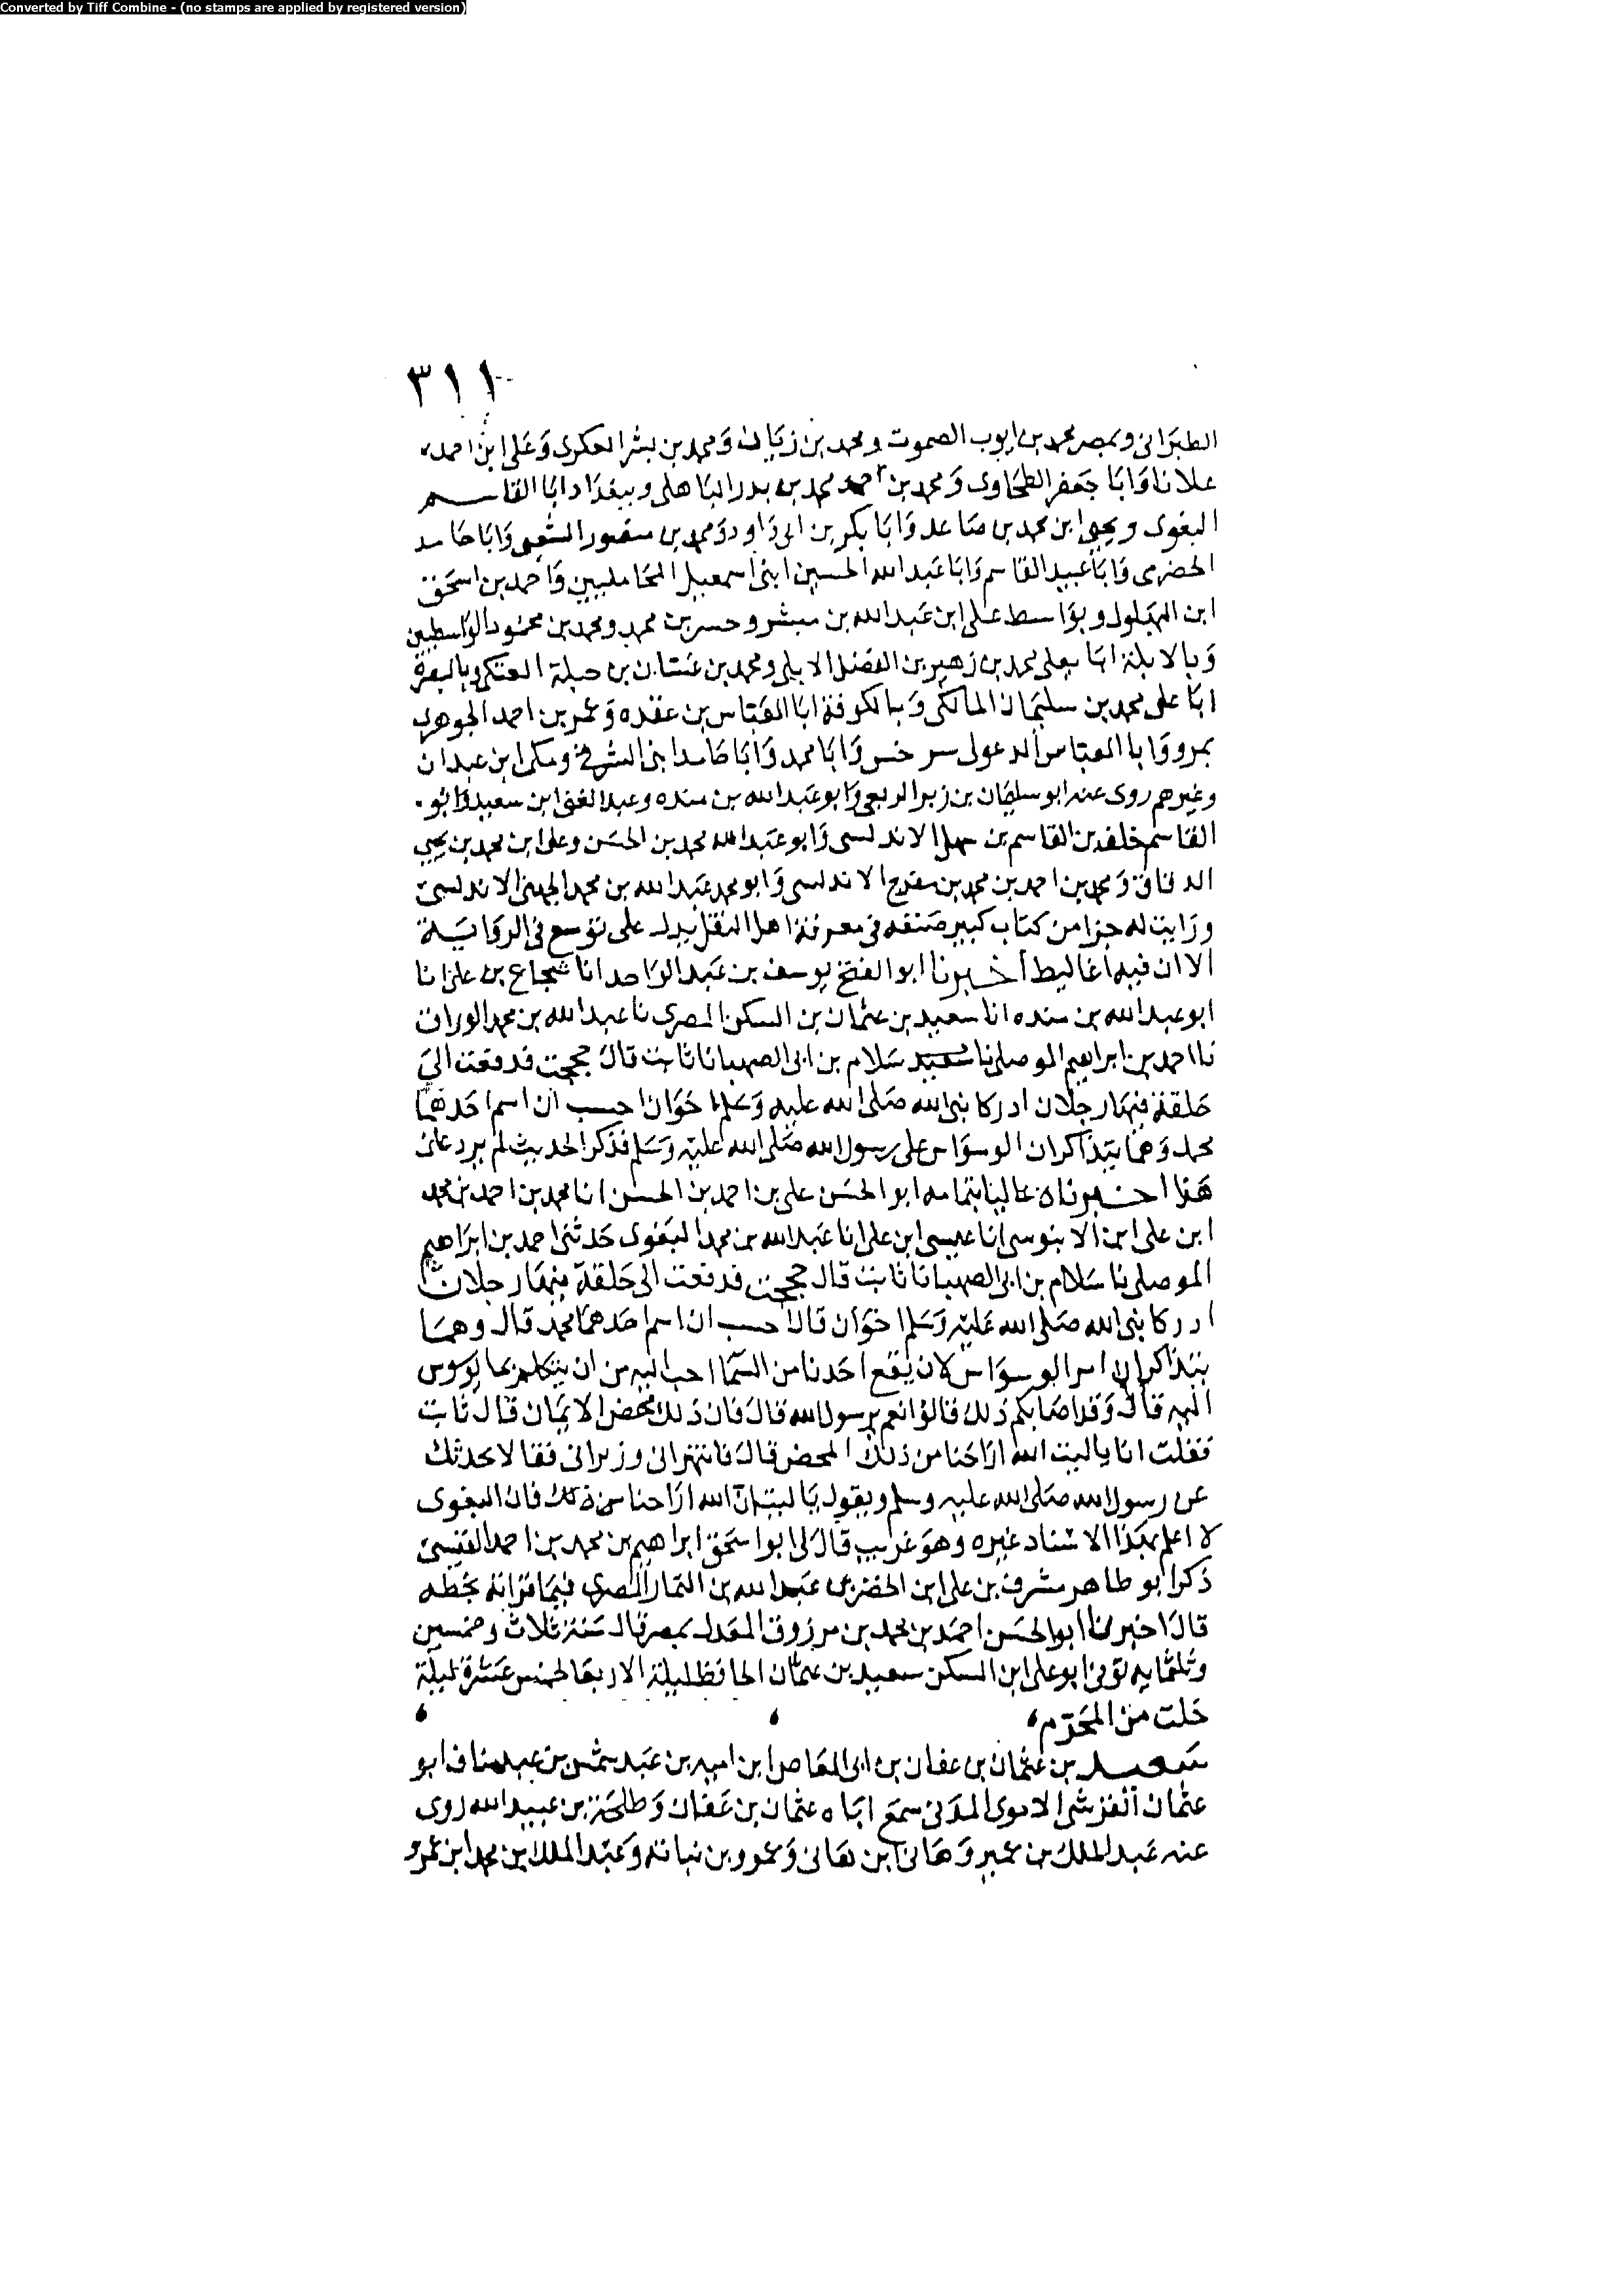 Converted by Tiff Combine - (no stamps are applied by registered version)
٣١١
الطبرانى وبمصر محمد بن ايوب الصموت ومحمد بن زبان ومحمد بن بشر العكرى وعلى ابن احمد
علانا وابا جعفر الطحاوى ومحمد بن احمد محمد بن بدر الباهلى وببغداد ابا القاسم
البغوى ويحيى ابن محمد بن صاعد وابا بكر بن ابى داود ومحمد بن منصور الشيعى وابا حامد
الحضرمى وابا عبيد القاسم وابا عبد الله الحسين ابنى اسمعيل المحامليين واحمد بن اسحق
ابن البهلول وبواسط على ابن عبد الله بن مبشر وحسن بن محمد ومحمد بن محمود الواسطيين
وبالابلة ابا يعلى محمد بن زهير بن الفضل الابلى ومحمد بن غسان بن جبلة العتكى وبالبصرة
ابا على محمد بن سليمان المالكى وبالكوفة ابا العباس بن عقده وعمر بن احمد الجوهرى
بمرو وابا العباس الدعولى سرخس وابا محمد وابا حامد ابنى الشرقى ومكى ابن عبدان
وغيرهم روى عنه ابو سليمان بن زبر الربعى وابو عبد الله بن منده وعبد الغنى ابن سعيد وابو
القاسم خلف بن القاسم بن سهل الاندلسى وابو عبد الله محمد بن الحسن وعلى ابن محمد بن يحيى
الدقاق ومحمد بن احمد بن محمد بن مفرج الاندلسى وابو محمد عبد الله بن محمد الجهنى الاندلسى
ورايت له جزا من كتاب كبير صنفه فى معرفة اهل النقل يدل على توسع فى الرواية
الا ان فيه اغاليط اخبرنا ابو الفتح يوسف بن عبد الواحد انا شجاع بن على انا
ابو عبد الله بن منده انا سعيد بن عثمان بن السكن المصرى نا عبد الله بن محمد الوراق
نا احمد بن ابراهيم الموصلى نا سعيد سلام بن ابى الصهبا نا ثابت قال حججت فدفعت الى
حلقة فيها رجلان ادركا نبى الله صلى الله عليه وسلم اخوان احسب ان اسم احدهما
محمد وهما يتذاكران الوسواس على رسول الله صلى الله عليه وسلم فذكر الحديث لم يرد على
هذا اخبرناه عاليا بتمامه ابو الحسن على بن احمد بن الحسن انا محمد بن احمد بن محمد
ابن على ابن الابنوسى انا عيسى ابن على انا عبد الله بن محمد البغوى حدثنى احمد بن ابراهيم
الموصلى نا سلام بن ابى الصهبا نا ثابت قال حججت فدفعت الى حلقة فيها رجلان
ادركا نبى الله صلى الله عليه وسلم اخوان قال احسب ان اسم احدهما محمد قال وهما
يتذاكران امر الوسواس لان يقع احدنا من السما احب اليه من ان يتكلم بما يوسوس
اليه قال وقد اصابكم ذلك قالوا نعم يرسول الله قال فان ذلك محض الايمان قال ثابت
فقلت انا يا ليت الله اراحنا من ذلك المحض قال فانتهرانى وزبرانى فقالا نحدثك
عن رسول الله صلى الله عليه وسلم ويقول يا ليت ان الله اراحنا من ذلك قال البغوى
لا اعلم بهذا الاسناد غيره وهو غريب قال لى ابو اسحق ابراهيم بن محمد بن احمد القيسى
ذكر ابو طاهر مشرف بن على ابن الخضر بن عبد الله بن التمار المصرى فيما قرانه بخطه
قال اخبرنا ابو الحسن احمد بن محمد بن مرزوق المعدل بمصر قال سنة ثلاث وخمسين
وثلثمايه توفى ابو على ابن السكن سعيد بن عثمان الحافظ ليلة الاربعا لخمس عشرة ليلة
خلت من المحرم
سعيد بن عثمان بن عفان بن ابى العاص ابن اميه بن عبد شمس بن عبد مناف ابو
عثمان القرشى الاموى المدنى سمع اباه عثمان بن عفان وطلحة بن عبيد الله روى
عنه عبد الملك بن عمير وهانى ابن هانى وعمرو بن نباتة وعبد الملك ابن محمد ابن عمرو